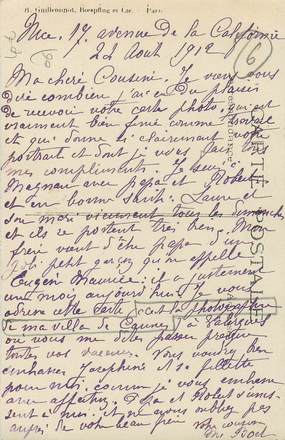 H. Guilleminot, Boespflug et Cie. Paris.
Nice. 17. avenue de la Californie
22 Août 1912
6
Ma chère Cousine. Je viens vous
dire combien j'ai eu du plaisir
de recevoir votre carte photo, qui est
vraiment bien finie comme
et qui donne si clairement votre
portrait et dont je vous fais tous
mes compliments. Je suis à
avec papa et Robert
et en bonne santé. Laure et
son mari viennent tous les dimanches
et ils se portent très bien. Mon
frère vient d'être papa d'un
joli petit garçon qu'on appelle
Eugène Maurice: il a justement
un moy aujourd'hui. Je vous
adresse cette carte c'est la photographie
de ma villa de Cannes à
où vous me dites passer presque
toutes vos vacances. Vous voudrez bien
embrasser Joséphine et sa fillette
pour moi, comme je vous embrasse
avec affection. Papa et Robert s'unis-
sent à moi et ne nous oubliez pas
auprès de votre beau frère
Votre cousine
CARTE POSTALE